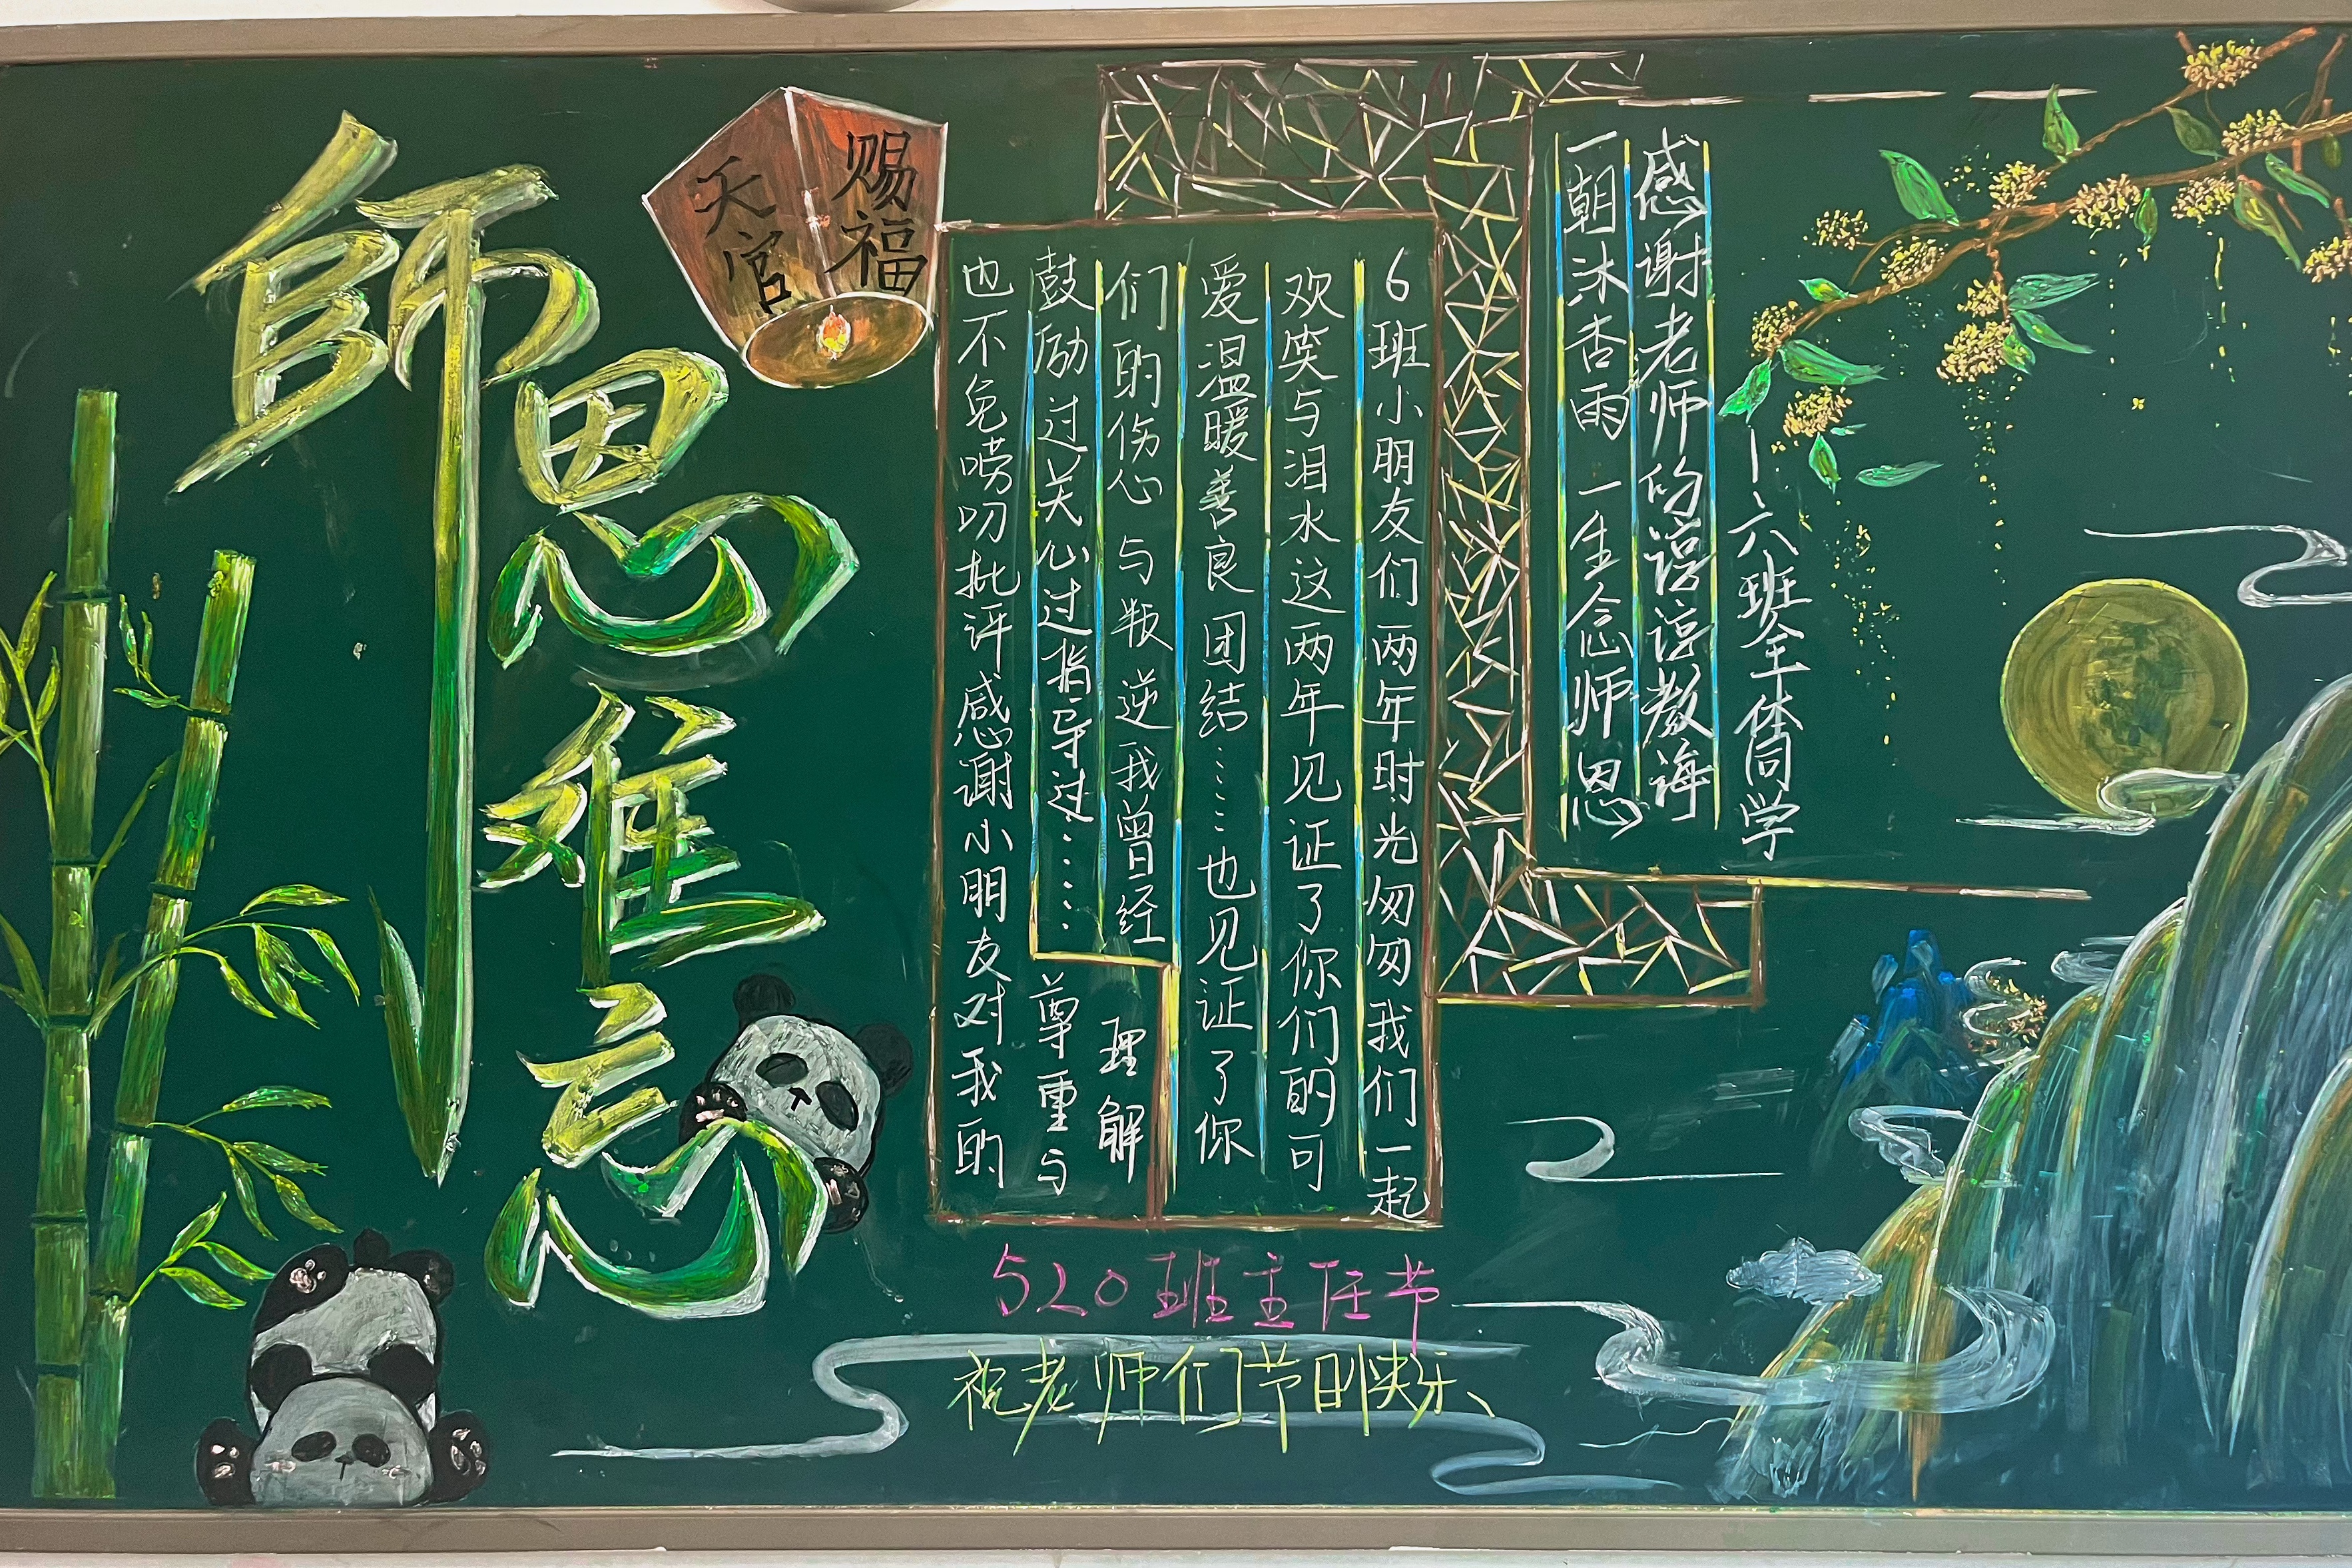 師恩难忘
天官
赐福
感谢老师的谆谆教诲
一朝沐杏雨 一生念师恩
—六班全体同学
6班小朋友们两年时光匆匆我们一起
欢笑与泪水这两年见证了你们的可
爱温暖善良团结……也见证了你
们的伤心与叛逆我曾经
鼓励过关心过指导过……
也不免唠叨批评感谢小朋友对我的
尊重与
理解
520班主任节
祝老师们节日快乐